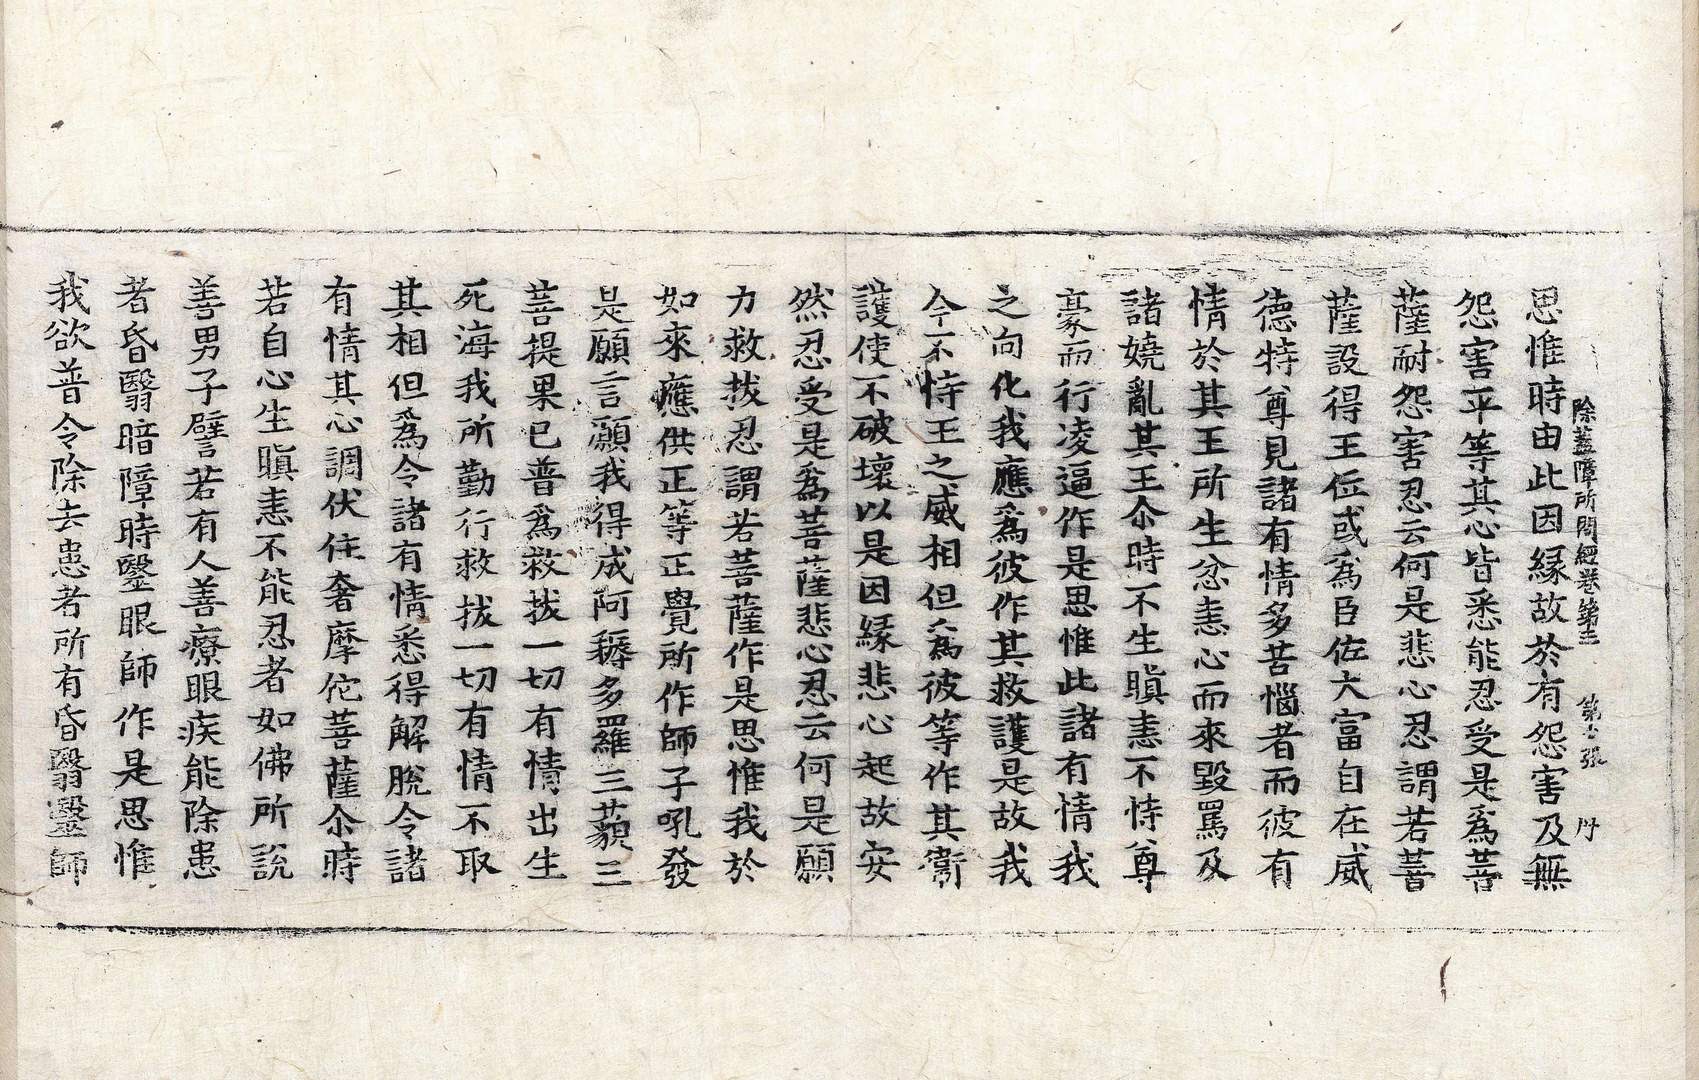 除蓋障所問經卷第三 第七張 丹
思惟時由此因緣故於有怨害及無
怨害平等其心皆悉能忍受是爲菩
薩耐怨害忍云何是悲心忍謂若菩
薩設得王位或爲臣佐大富自在威
德特尊見諸有情多苦惱者而彼有
情於其王所生忿恚心而來毀罵及
諸嬈亂其王尒時不生瞋恚不恃尊
豪而行凌逼作是思惟此諸有情我
之向化我應爲彼作其救護是故我
今不恃王之威相但爲彼等作其衛
護使不破壞以是因緣悲心起故安
然忍受是爲菩薩悲心忍云何是願
力救拔忍謂若菩薩作是思惟我於
如來應供正等正覺所作師子吼發
是願言願我得成阿耨多羅三藐三
菩提果已普爲救拔一切有情出生
死海我所勤行救拔一切有情不取
其相但爲令諸有情悉得解脫令諸
有情其心調伏住奢摩佗菩薩尒時
若自心生瞋恚不能忍者如佛所說
善男子譬若有人善療眼疾能除患
者昏翳暗障時醫眼師作是思惟
我欲普令除去患者所有昏翳醫師